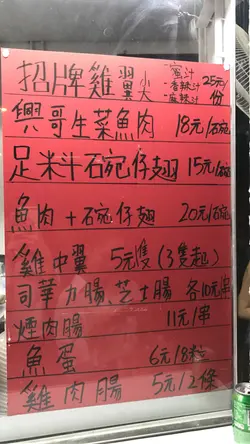 招牌雞翼尖 -蜜汁 -香辣汁 -麻辣汁 25元/份
興哥生菜魚肉 18元/碗
足料碗仔翅 15元/碗
魚肉+碗仔翅 20元/碗
雞中翼 5元隻(3隻起)
司華力腸、芝士腸 各10元/串
煙肉腸 11元/串
魚蛋 6元/8粒
雞肉腸 5元/2條